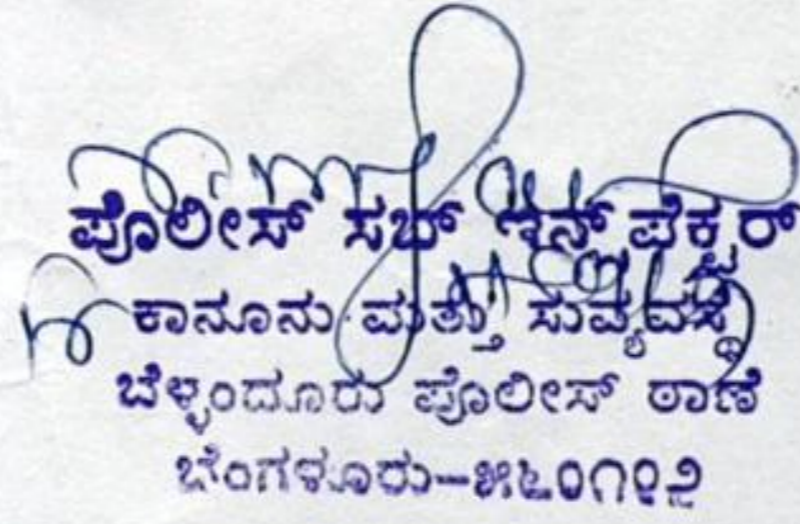 ಪೊಲೀಸ್ ಸಬ್ ಇನ್ಸ್‌ಪೆಕ್ಟರ್
ಕಾನೂನು ಮತ್ತು ಸುವ್ಯವಸ್ಥೆ
ಬೆಳ್ಳಂದೂರು ಪೊಲೀಸ್ ಠಾಣೆ
ಬೆಂಗಳೂರು-೫೬೦೧೦೩